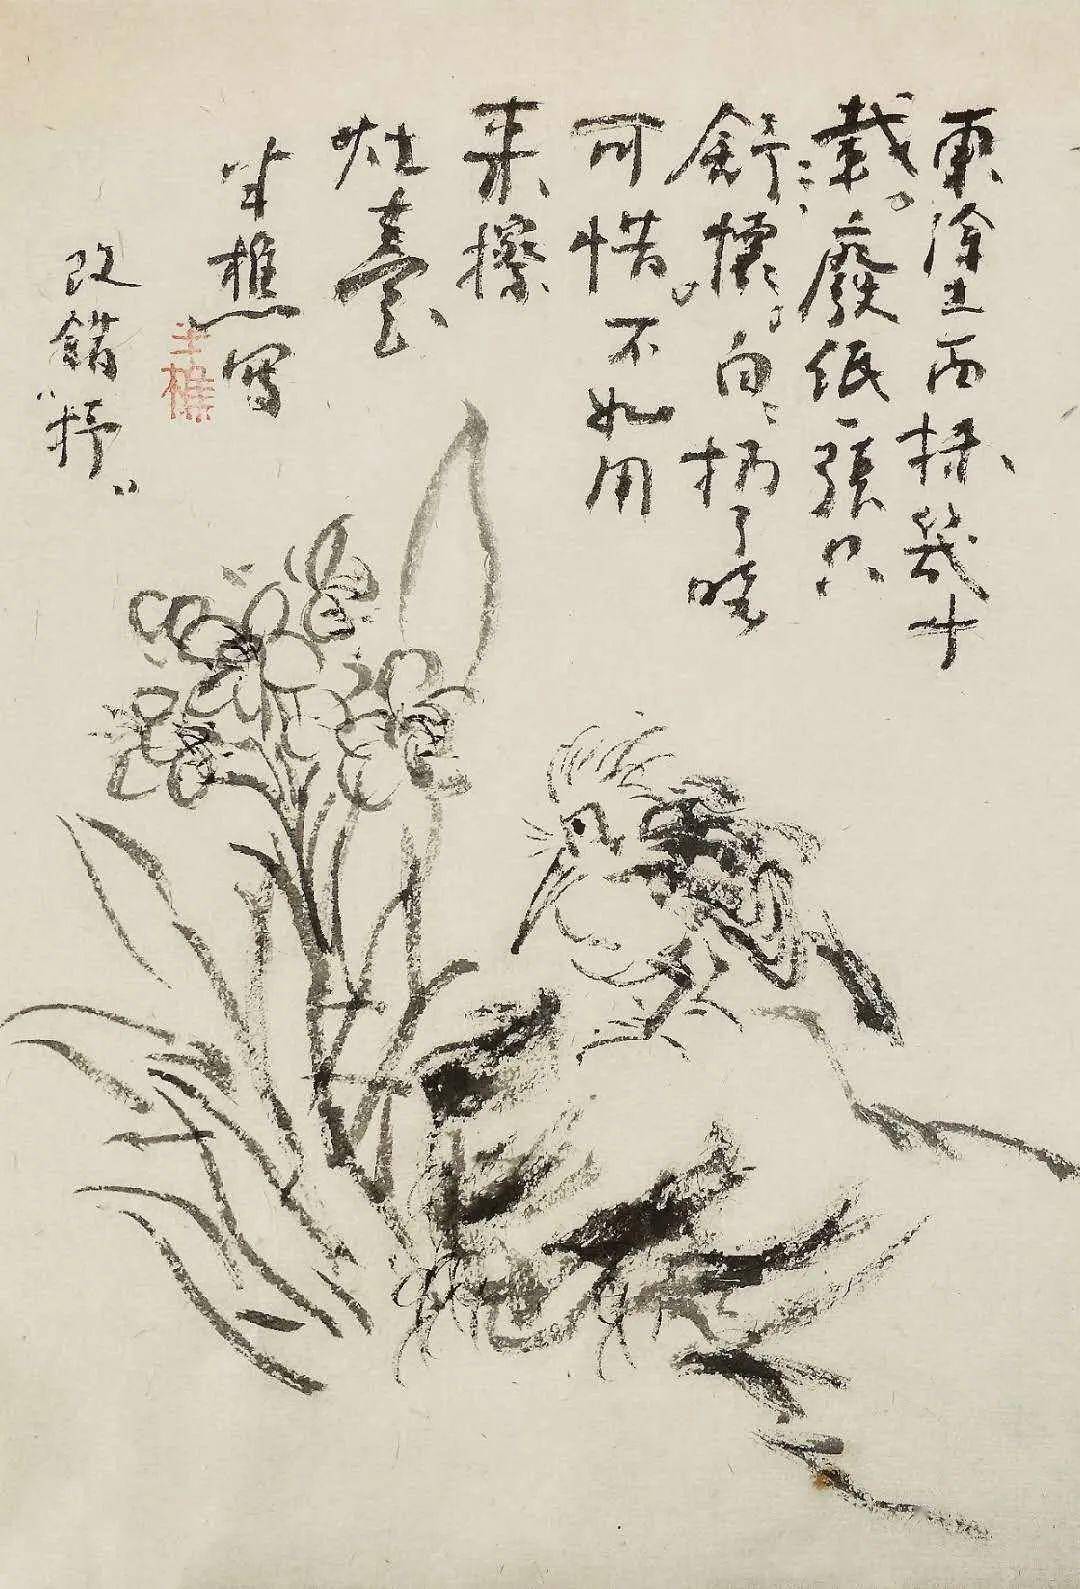 東塗西抹幾十
載。廢紙一張只
舒懷。白 了
可惜。不如用
来擦
灶臺
半樵寫
半樵
改錯“抒”